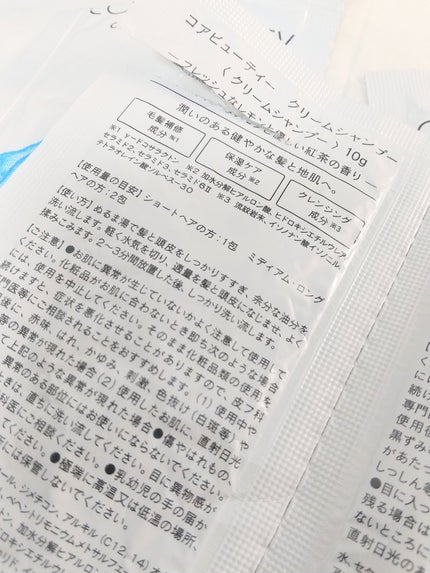 コアビューティー クリームシャンプー
〈クリームシャンプー〉10g
ーフレッシュなレモンと優しい紅茶の香りー
潤いのある健やかな髪と地肌へ。
毛髪補修
成分※1
保湿ケア
成分※2
クレンジング
成分※3
※1 γ-ドコサラクトン ※2 加水分解ヒアルロン酸、ヒドロキシエチルウレア、
セラミド2、セラミド3、セラミド6Ⅱ ※3 流紋岩末、イソノナン酸イソノニル、
テトラオレイン酸ソルベス-30
【使用量の目安】ショートヘアの方:1包 ミディアム・ロング
ヘアの方:2包
【使い方】ぬるま湯で髪と頭皮をしっかりすすぎ、余分な油分を
洗い流します。軽く水気を切り、適量を髪と頭皮になじませ、よく
揉みこみます。2~3分間放置した後、しっかり洗い流します。
【ご注意】●お肌に異常が生じていないかよく注意して使用して
ください。化粧品がお肌に合わないとき即ち次のような場合
には、使用を中止してください。そのまま化粧品類の使用を
続けますと、症状を悪化させることがありますので、皮フ科
専門医等にご相談されることをおすすめします。(1)使用中
に赤味、はれ、かゆみ、刺激、色抜け(白斑等)
等の異常が現れた場合(2)使用したお肌に、直射日光
て上記のような異常が現れた場合●傷やはれもの、
異常のある部位にはお使いにならないでください。
ときは、直ちに洗い流してください。目に異物感が
科医にご相談ください。●乳幼児の手の届か
てください。●極端に高温又は低温の場所、
所には保管しないでください。
ール、ジメチコン、アルキル(C12,14)
ン、ベヘントリモニウムメトサルフェ
2、加水分解ヒアルロン
ロキシエチルウレ